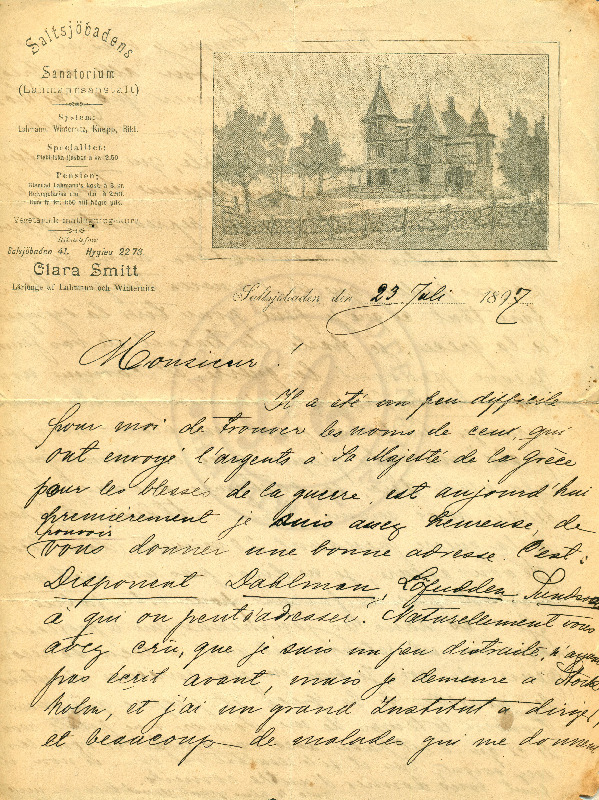 Saltsjöbadens
Sanatorium
(Lahmannsanstalt)
System:
Lahmann, Winternitz, Kneipp,
Specialitet:
Pension:
Saltsjöbaden 41. Hygiea 22 73.
Clara Smitt
Lärjunge af Lahmann och Winternitz
Saltsjöbaden den 23 Juli 1897
Monsieur!
Il a été un peu difficile
pour moi de trouver les noms de ceux, qui
ont envoyé l'argents à Sa Majesté de la Grèce
pour les blessés de la guerre, est aujourd'hui
premièrement je suis avez heureuse, de
pouvoir
vous donner une bonne adresse. C'est:
Disponent Dahlman, Löfudden, Sundsva
à qui on peut s'adresser. Naturellement vous
avez cru, que je suis un peu distraite, n'ayant
pas écrit avant, mais je demeure à Stock
holm, et j'ai un grand Institut a dirige
et beaucoup de malades qui me donnent